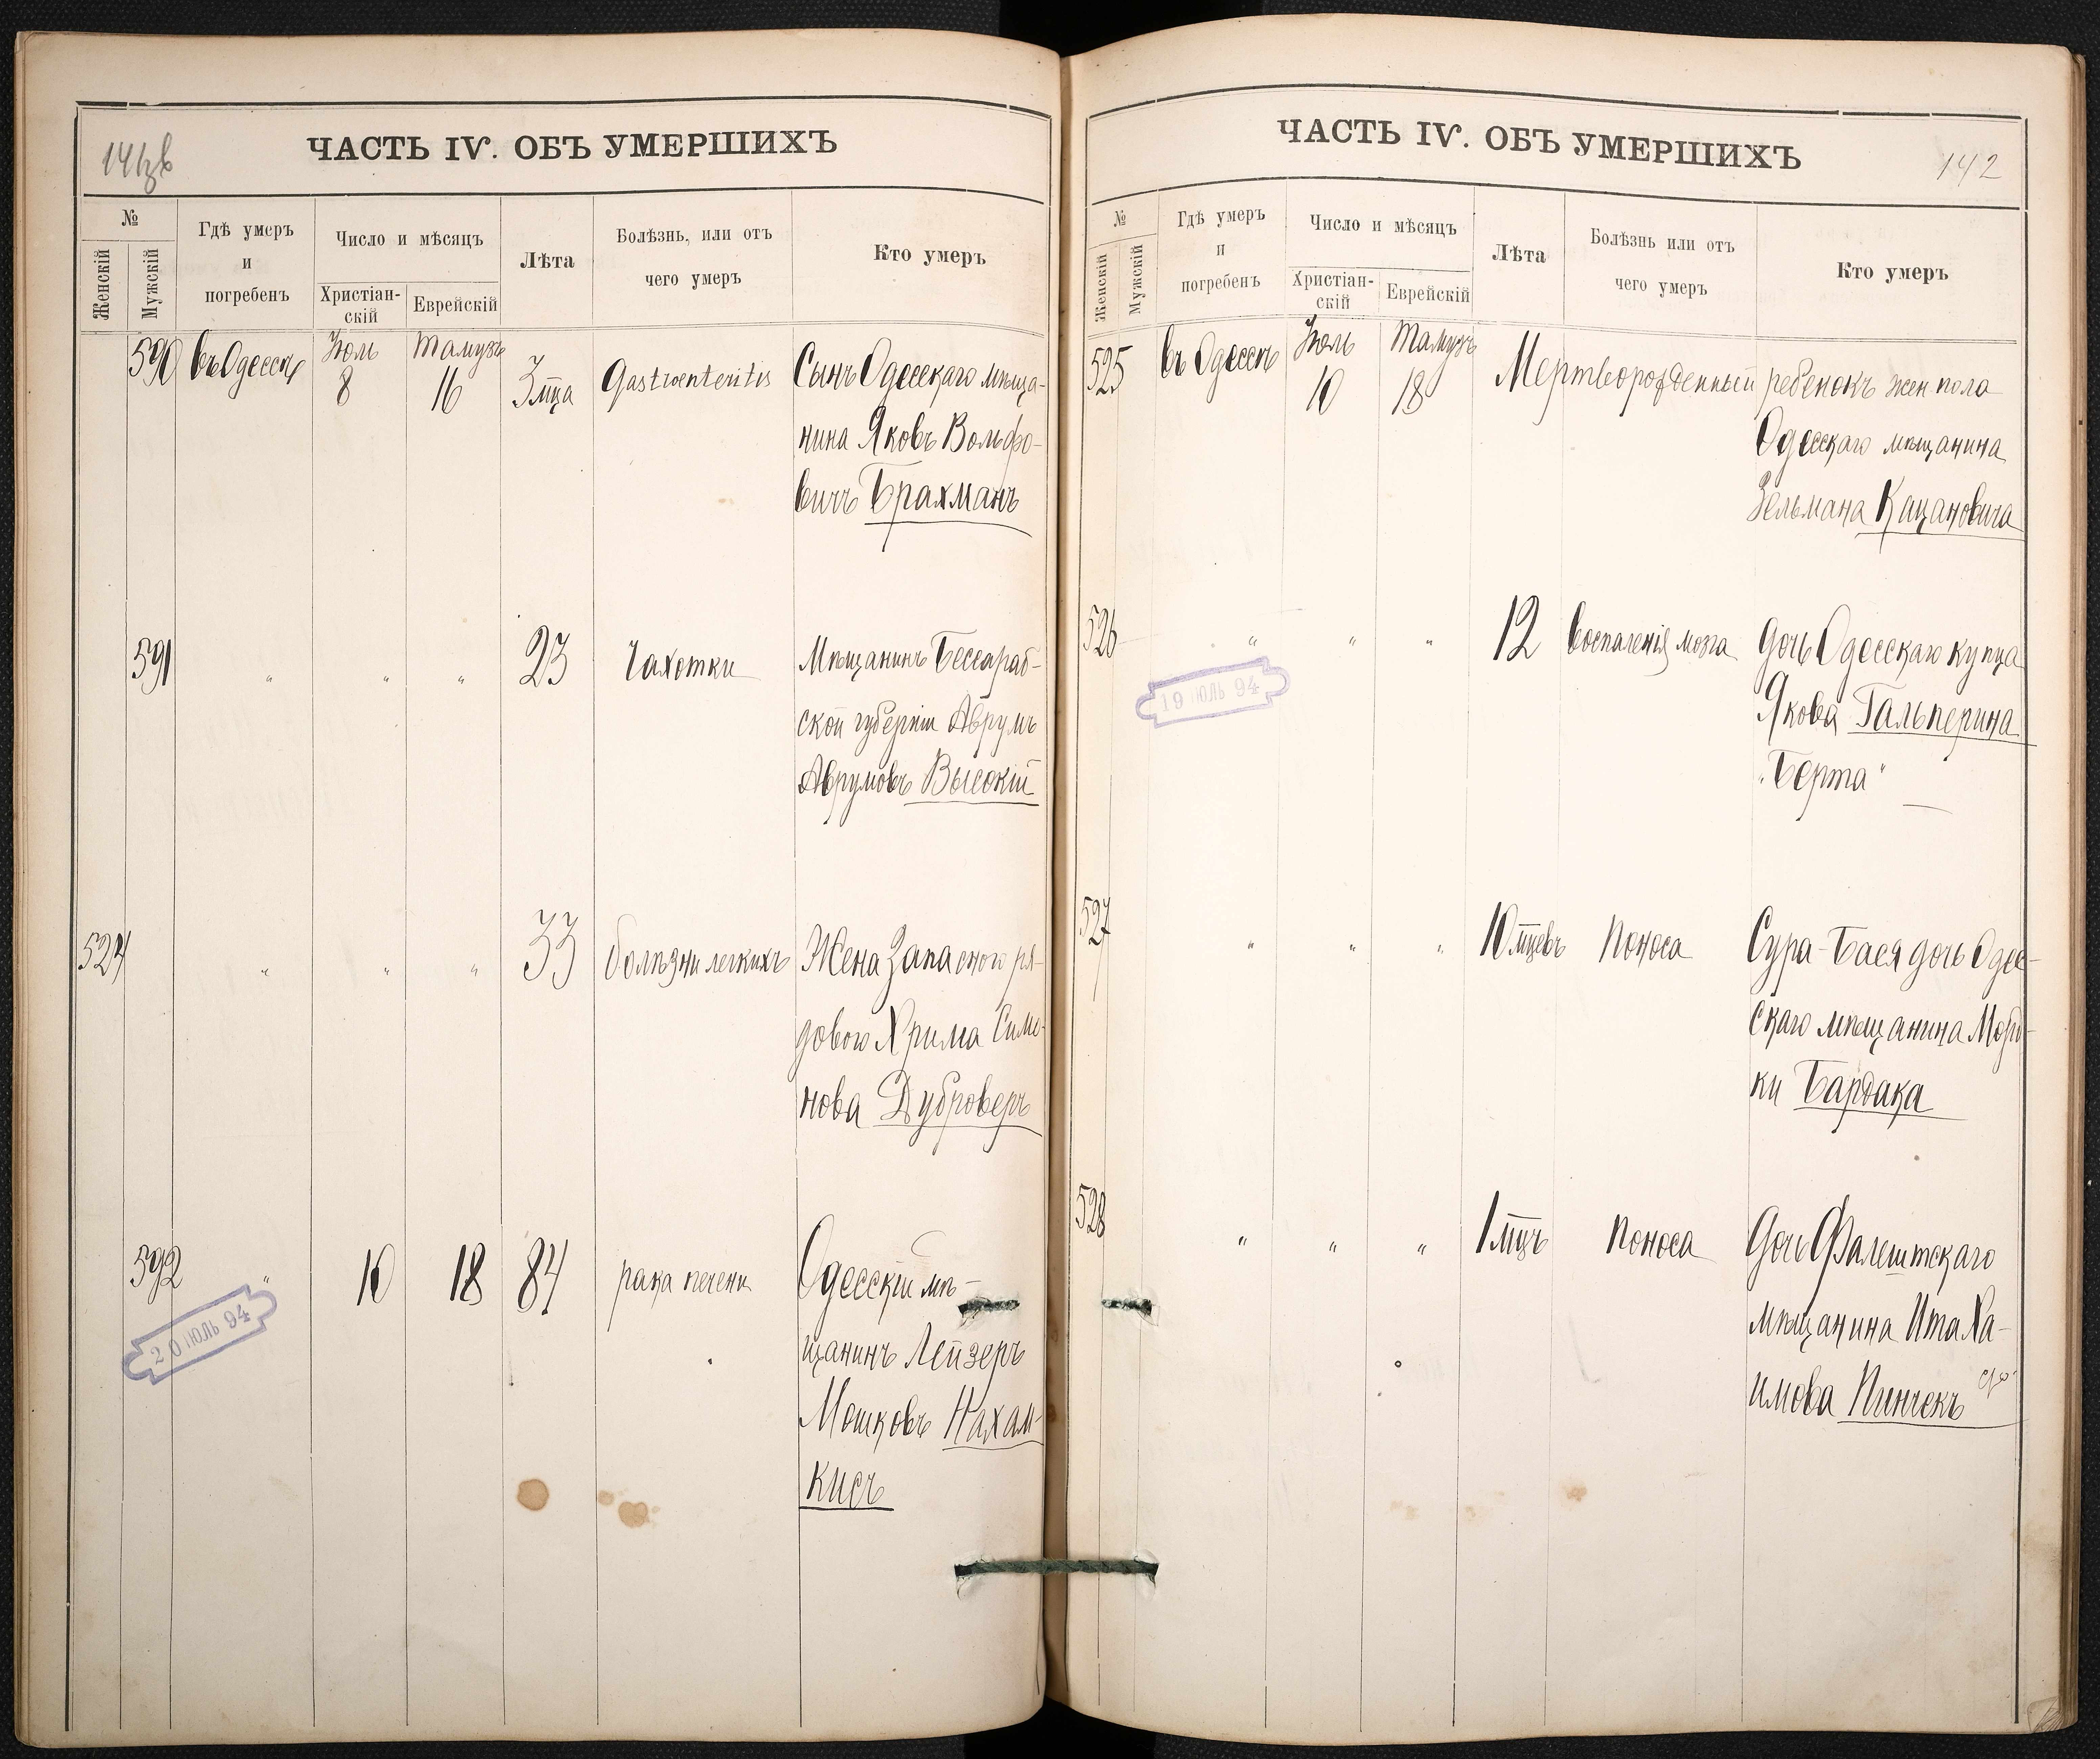 141об
ЧАСТЬ IV. ОБЪ УМЕРШИХЪ
№
Женскій
Мужскій
Гдѣ умеръ
и
погребенъ
Число и мѣсяцъ
Христіан-
скій
Еврейскій
Лѣта
Болѣзнь, или отъ
чего умеръ
Кто умеръ
590 въ Одессѣ Іюль Тамузъ
8 16 3 мца Gastroenteritis Сынъ Одесскаго мѣща-
нина Яковъ Вольфо-
вичъ Брахманъ
591 " " " 23 Чахотки Мѣщанинъ Бессараб-
ской губерніи Аврумъ
Аврумовъ Высокій
524 " " " 33 болѣзни легкихъ Жена Запасного ря-
дового Хрима Симо-
нова Дуброверъ
592 " 10 18 84 рака печени Одесскій мѣ-
щанинъ Лейзеръ
Мошковъ Нахам-
кисъ
20 ІЮЛЬ 94
ЧАСТЬ IV. ОБЪ УМЕРШИХЪ
142
№
Женскій
Мужскій
Гдѣ умеръ
и
погребенъ
Число и мѣсяцъ
Христіан-
скій
Еврейскій
Лѣта
Болѣзнь или отъ
чего умеръ
Кто умеръ
525 въ Одессѣ Іюль Тамузъ
10 18 Мертворожденный ребенокъ жен пола
Одесскаго мѣщанина
Зельмана Кацановича
526 " " " 12 Воспаленія мозга Дочь Одесскаго купца
Якова Гальперина
"Берта"
19 ІЮЛЬ 94
527 " " " 10 мцевъ Поноса Сура-Бася дочь Одес-
скаго мѣщанина Морд-
ки Бардака
528 " " " 1 мцъ Поноса Дочь Фалештскаго
мѣщанина Ита Ха-
имова Пинчекъ